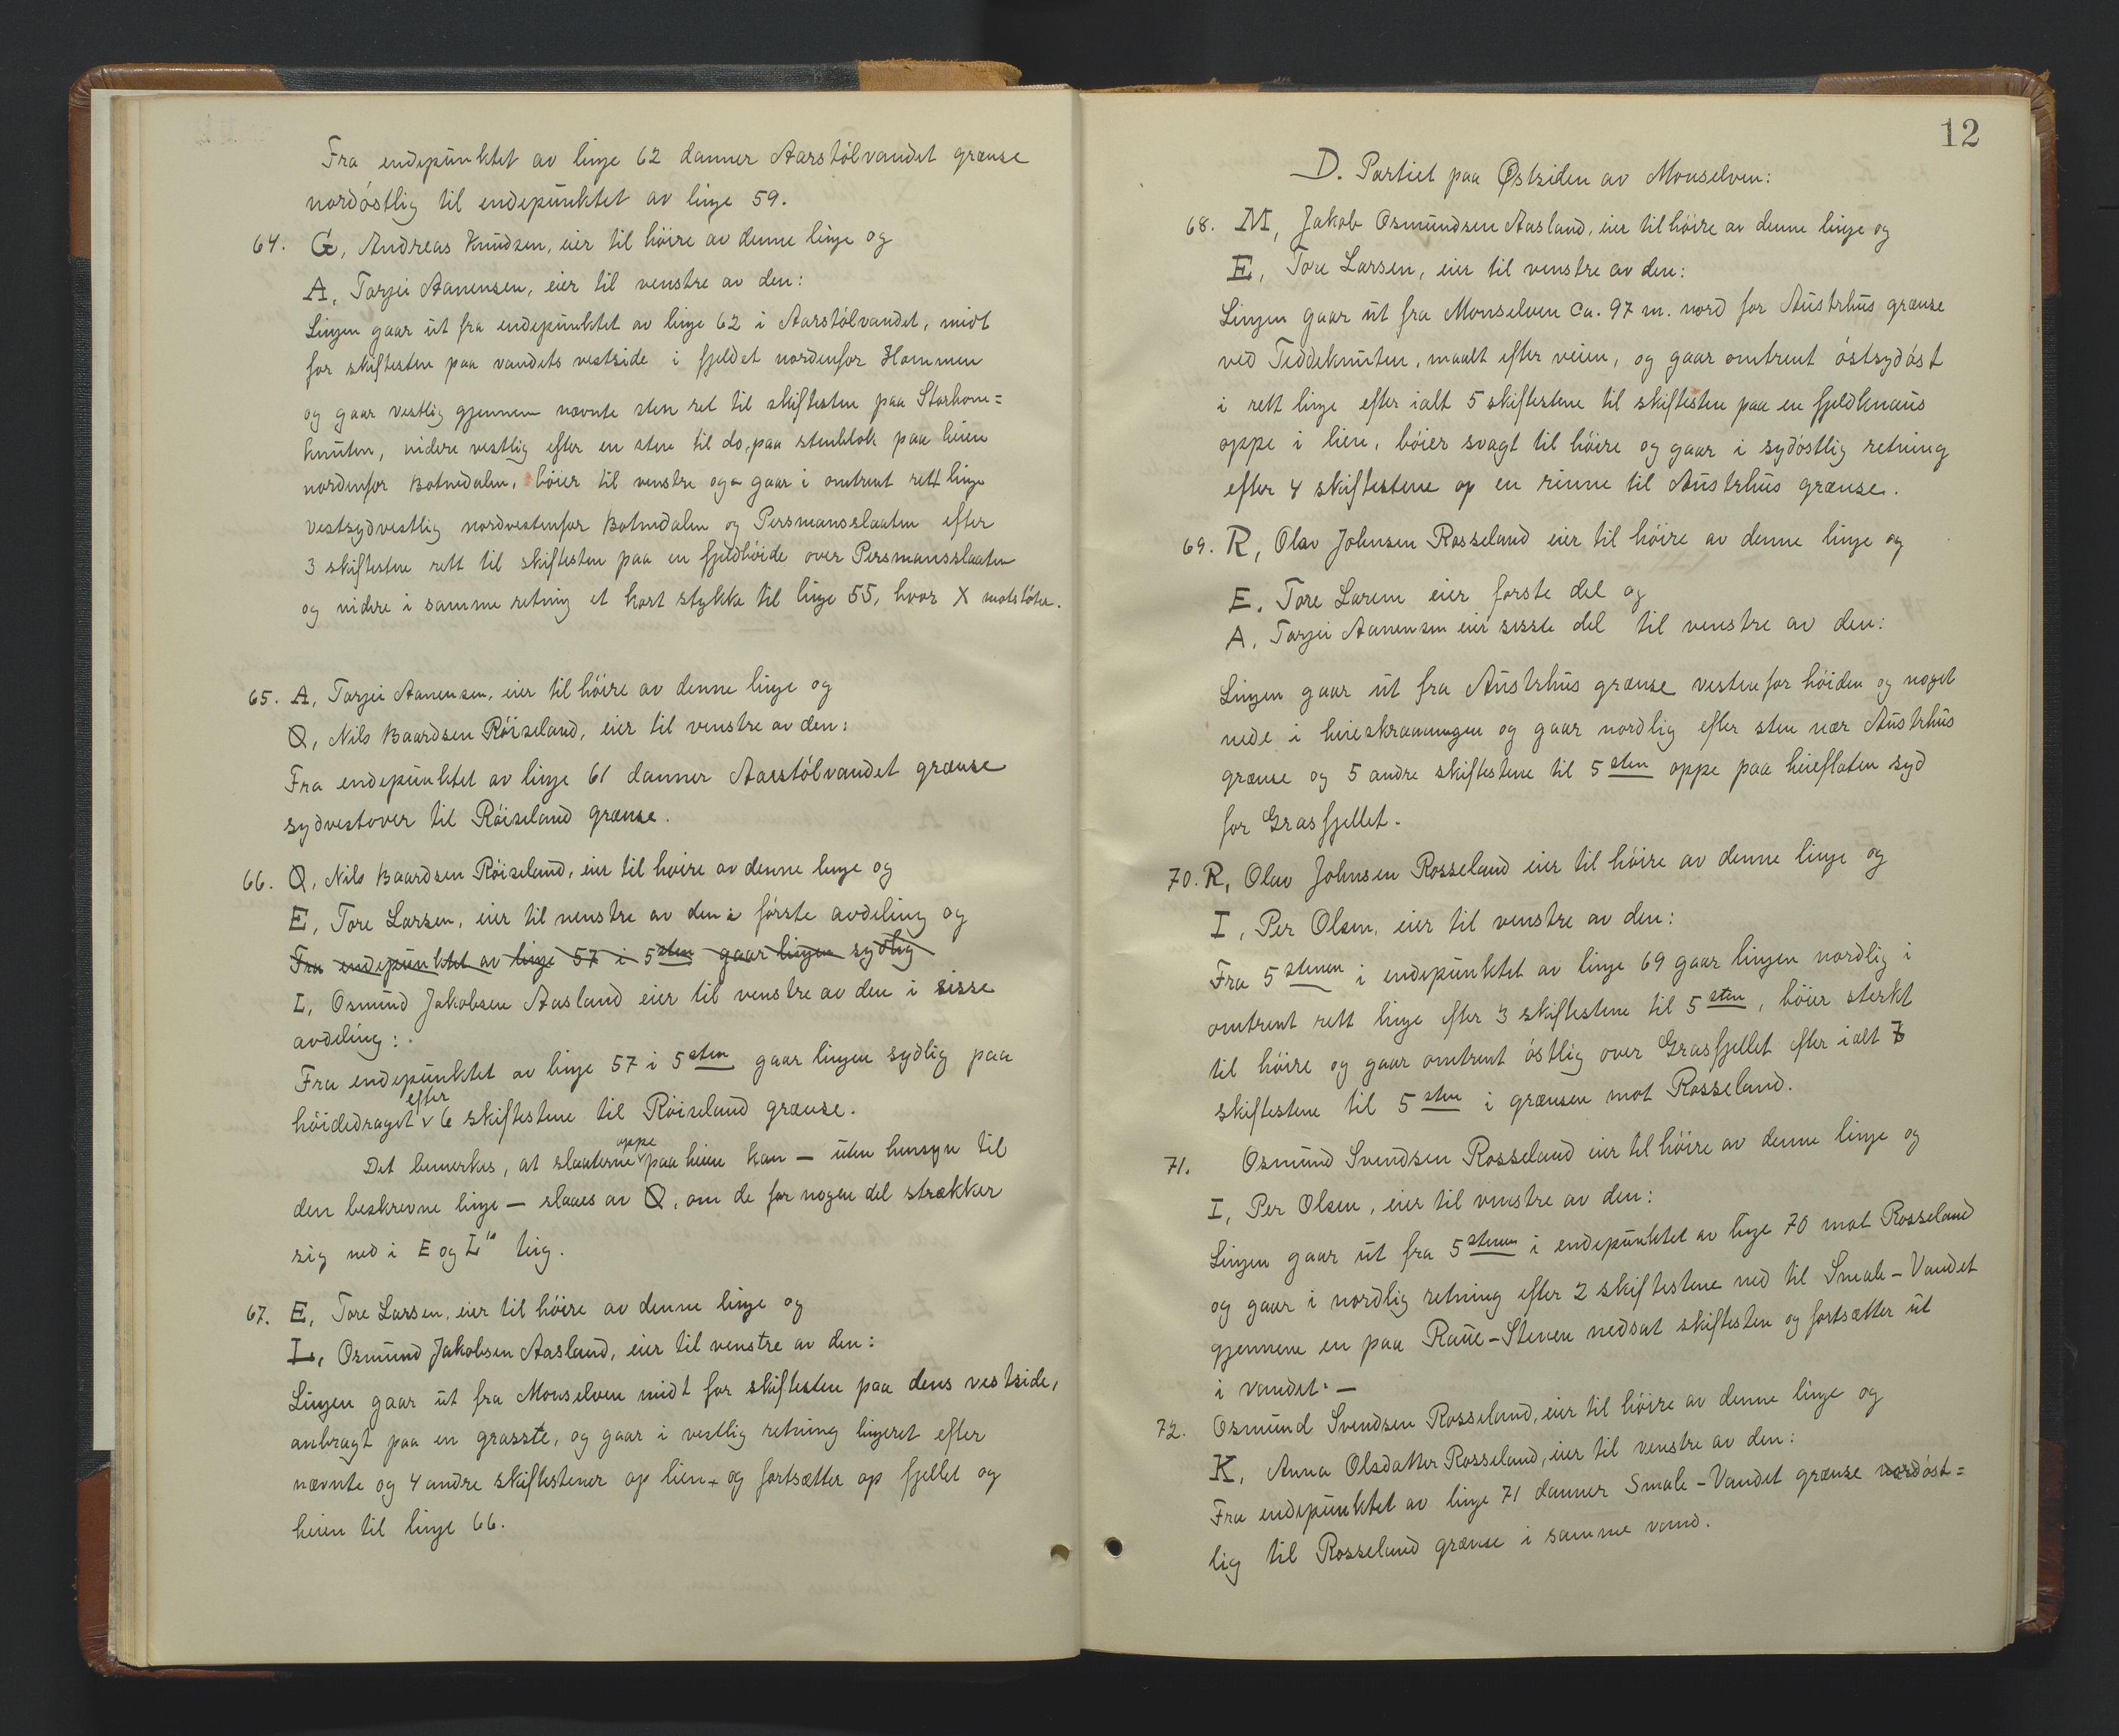 Fra endepunktet av linje 62 danner Aarstölvandet grænse
nordöstlig til endepunktet av linje 59.
64. G, Andreas Knudsen, eier til höire av denne linje og
A, Tarjei Aanensen, eier til venstre av den:
Linjen gaar ut fra endepunktet av linje 62 i Aarstölvandet, midt
for skiftesten paa vandets vestside i fjeldet nordenfor Hommen
og gaar vestlig gjennem nævnte sten ret til skiftesten paa Storhom=
knuten, videre vestlig efter en sten til do. paa stenblok paa heien
nordenfor Botnedalen, böier til venstre og gaar i omtrent rett linje
vestsydvestlig nordvestenfor Botnedalen og Persmansslaaten efter
3 skiftestene rett til skiftesten paa en fjeldhöide over Persmansslaaten
og videre i samme retning et kort stykke til linje 55, hvor X motstöter.
65. A, Tarjei Aanensen, eier til höire av denne linje og
Q, Nils Baardsen Röiseland, eier til venstre av den:
Fra endepunktet av linje 61 danner Aarstölvandet grænse
sydvestover til Röiseland grænse.
66. Q, Nils Baardsen Röiseland, eier til höire av denne linje og
E, Tore Larsen, eier til venstre av den i förste avdeling og
Fra endepunktet av linje 57 i 5 sten gaar linjen sydlig
L, Osmund Jakobsen Aasland eier til venstre av den i sisse
avdeling:
Fra endepunktet av linje 57 i 5 sten gaar linjen sydlig paa
höidedraget efter 6 skiftestene til Röiseland grænse.
Det bemerkes, at slaaterne oppe paa heien kan — uten hensyn til
den beskrevne linje — slaaes av Q, om de for nogen del strækker
sig ned i E og L's teig.
67. E, Tore Larsen, eier til höire av denne linje og
L, Osmund Jakobsen Aasland, eier til venstre av den:
Linjen gaar ut fra Monselven midt for skiftesten paa dens vestside,
anbragt paa en grasste, og gaar i vestlig retning linjeret efter
nævnte og 4 andre skiftestener op lien og fortsætter op fjellet og
heien til linje 66.
12
D. Partiet paa Østsiden av Monselven:
68. M, Jakob Osmundsen Aasland, eier til höire av denne linje og
E, Tore Larsen, eier til venstre av den:
Linjen gaar ut fra Monselven ca. 97 m. nord for Austrhus grænse
ved Teddeknuten, maalt efter veien, og gaar omtrent östsydöst
i rett linje efter ialt 5 skiftestene til skiftesten paa en fjeldknaus
oppe i lien, böier svagt til höire og gaar i sydöstlig retning
efter 4 skiftestene op en rinne til Austrhus grænse.
69. R, Olav Johnsen Rosseland eier til höire av denne linje og
E. Tore Larsen eier förste del og
A. Tarjei Aanensen eier sisste del til venstre av den:
Linjen gaar ut fra Austrhus grænse vestenfor höiden og noget
nede i heieskraaningen og gaar nordlig efter sten nær Austrhus
grænse og 5 andre skiftestene til 5 sten oppe paa heieflaten syd
for Grasfjellet.
70. R, Olav Johnsen Rosseland eier til höire av denne linje og
I, Per Olsen, eier til venstre av den:
Fra 5 stenen i endepunktet av linje 69 gaar linjen nordlig i
omtrent rett linje efter 3 skiftestene til 5 sten, böier sterkt
til höire og gaar omtrent östlig over Grasfjellet efter ialt 7
skiftestene til 5 sten i grænsen mot Rosseland.
71. Osmund Svendsen Rosseland eier til höire av denne linje og
I, Per Olsen, eier til venstre av den:
Linjen gaar ut fra 5 stenen i endepunktet av linje 70 mot Rosseland
og gaar i nordlig retning efter 2 skiftestene ned til Smale-Vandet
gjennem en paa Raue-Stenen nedsat skiftesten og fortsætter ut
i vandet. —
72. Osmund Svendsen Rosseland, eier til höire av denne linje og
K, Anna Olsdatter Rosseland, eier til venstre av den:
Fra endepunktet av linje 71 danner Smale-Vandet grænse nordöst=
lig til Rosseland grænse i samme vand.